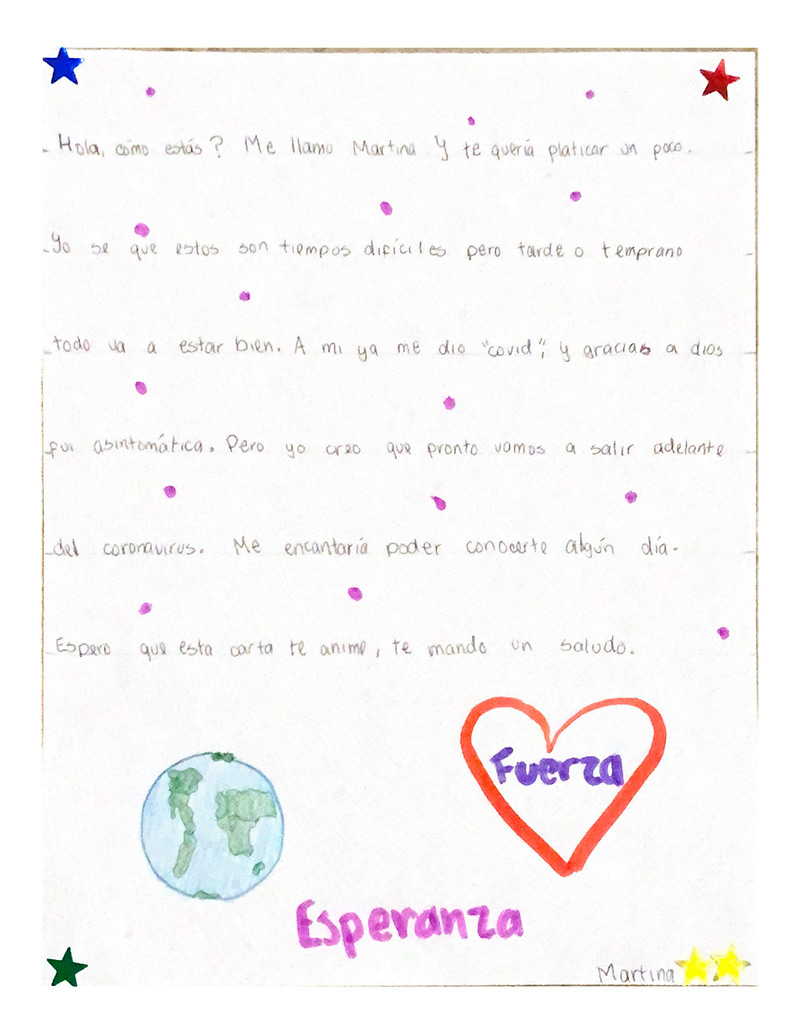 Hola, cómo estás? Me llamo Martina Y te quería platicar un poco.
Yo se que estos son tiempos difíciles pero tarde o temprano
todo va a estar bien. A mi ya me dio "covid", y gracias a dios
fui asintomática. Pero yo creo que pronto vamos a salir adelante
del coronavirus. Me encantaría poder conocerte algún día.
Espero que esta carta te anime, te mando un saludo.
Fuerza
Esperanza
Martina